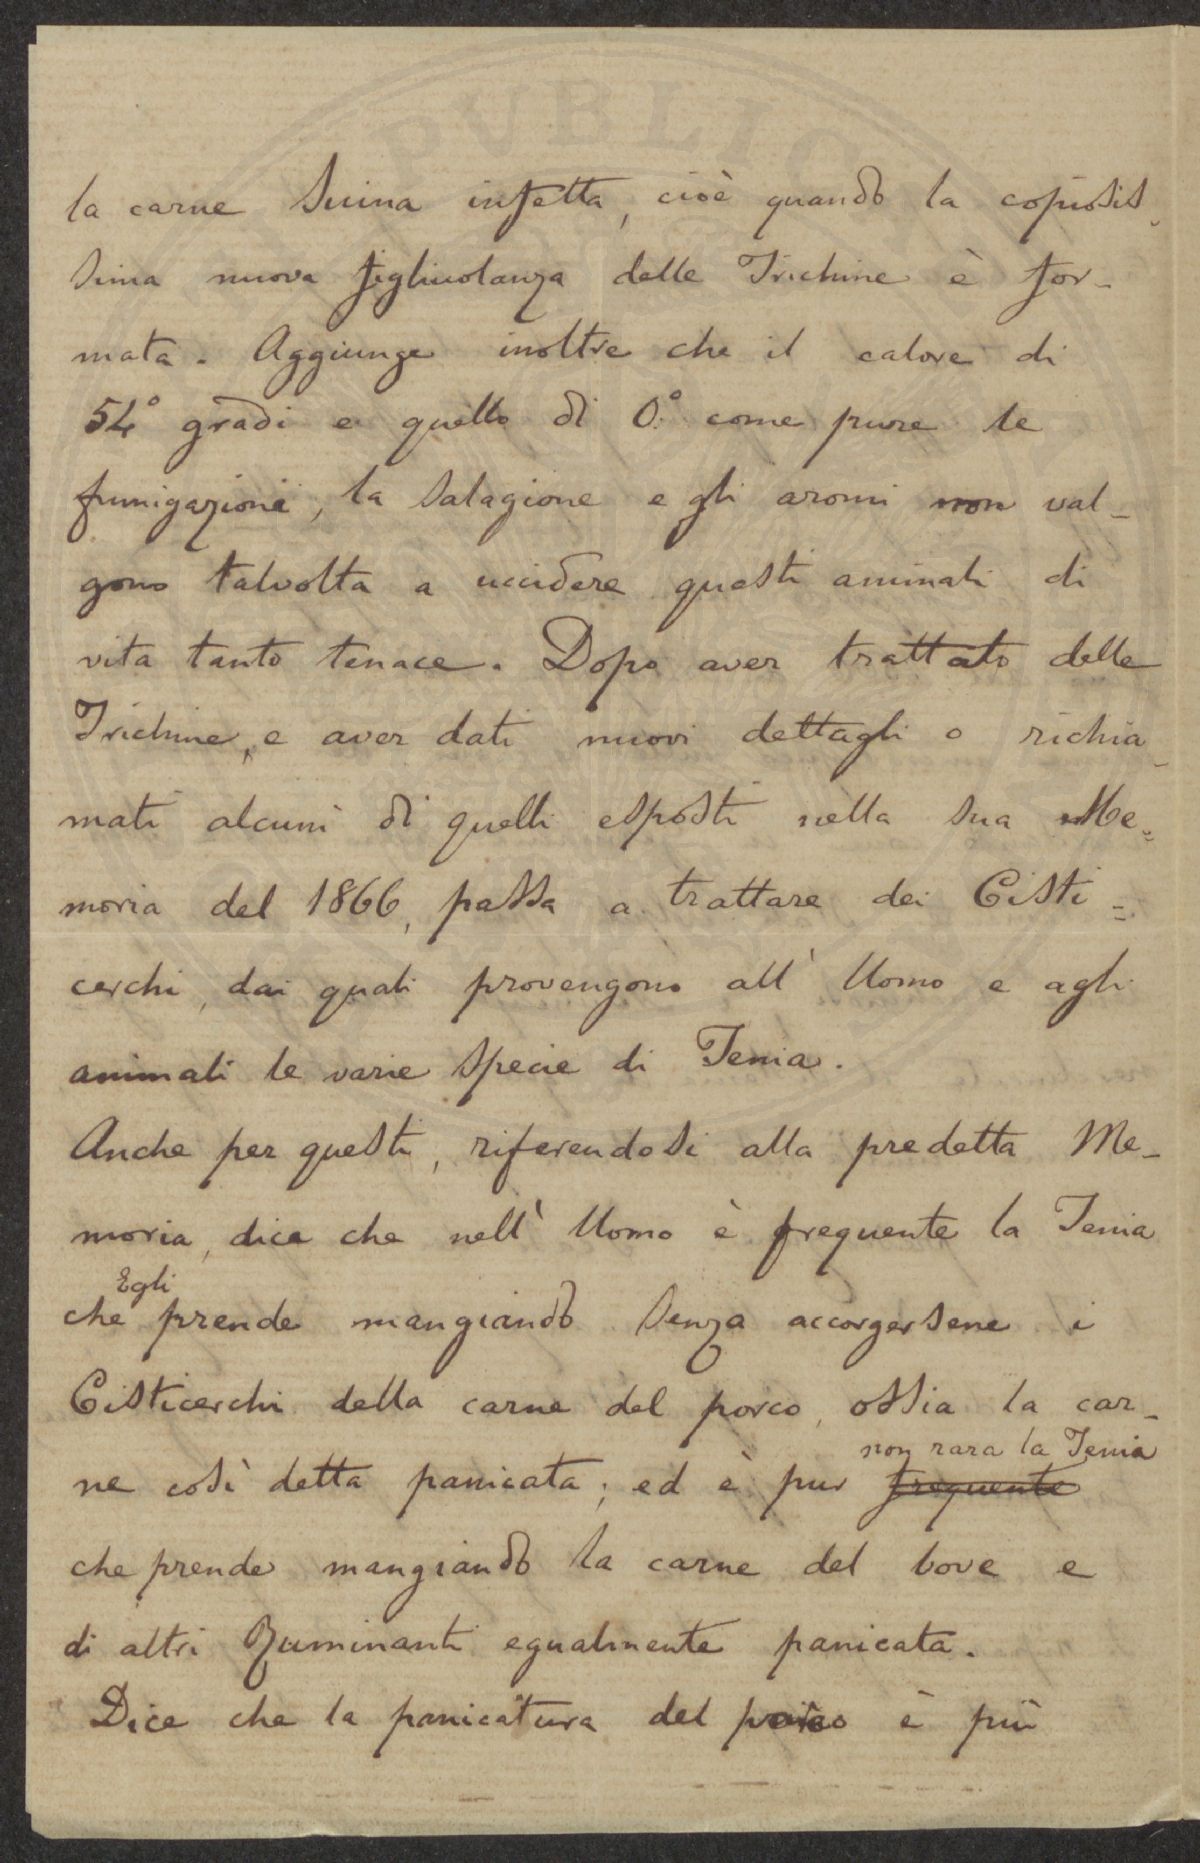 la carne suina infetta, cioè quando la copiosis-
sima nuova figliuolanza delle Trichine è for-
mata. Aggiunge inoltre che il calore di
54° gradi e quello di 0.° come pure le
fumigazioni, la salagione e gli aromi non val-
gono talvolta a uccidere questi animali di
vita tanto tenace. Dopo aver trattato delle
Trichine, e aver dati nuovi dettagli o richia-
mati alcuni di quelli esposti nella sua Me=
moria del 1866, passa a trattare dei Cisti=
cerchi, dai quali provengono all' Uomo e agli
animali le varie specie di Tenia.
Anche per questi, riferendosi alla predetta Me-
moria, dice che nell' Uomo è frequente la Tenia
Egli
che prende mangiando senza accorgersene i
Cisticerchi della carne del porco, ossia la car-
non rara la Tenia
ne così detta panicata; ed è pur frequente
che prende mangiando la carne del bove e
di altri Ruminanti egualmente panicata.
Dice che la panicatura del porco è più